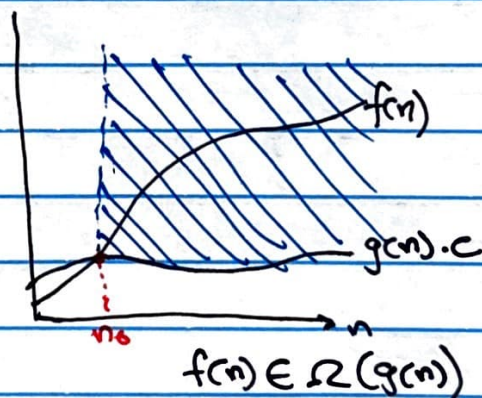 f(n)
g(n).c
n₀
n
f(n) ∈ Ω(g(n))